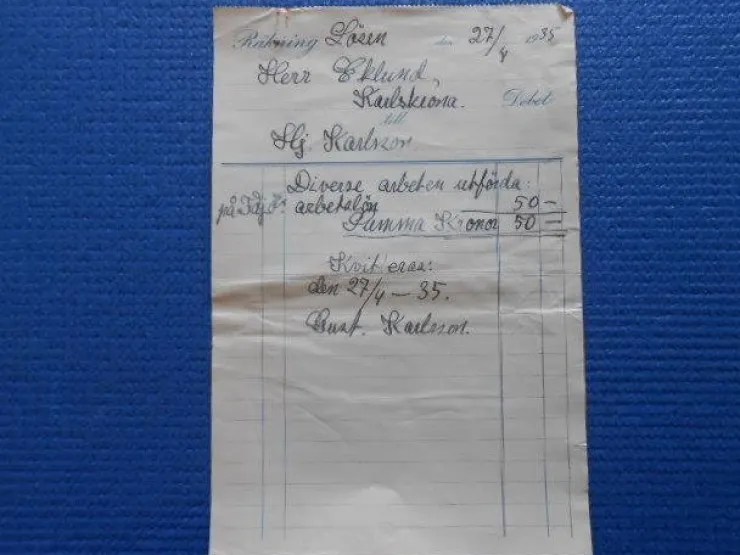 Räkning Lösen den 27/4 1935
Herr Eklund,
Karlskrona. Debet
till
Hj. Karlsson
Diverse arbeten utförda:
på arbetslön 50 —
Summa Kronor 50 —
Kvitteras:
den 27/4 — 35.
Gust. Karlsson.